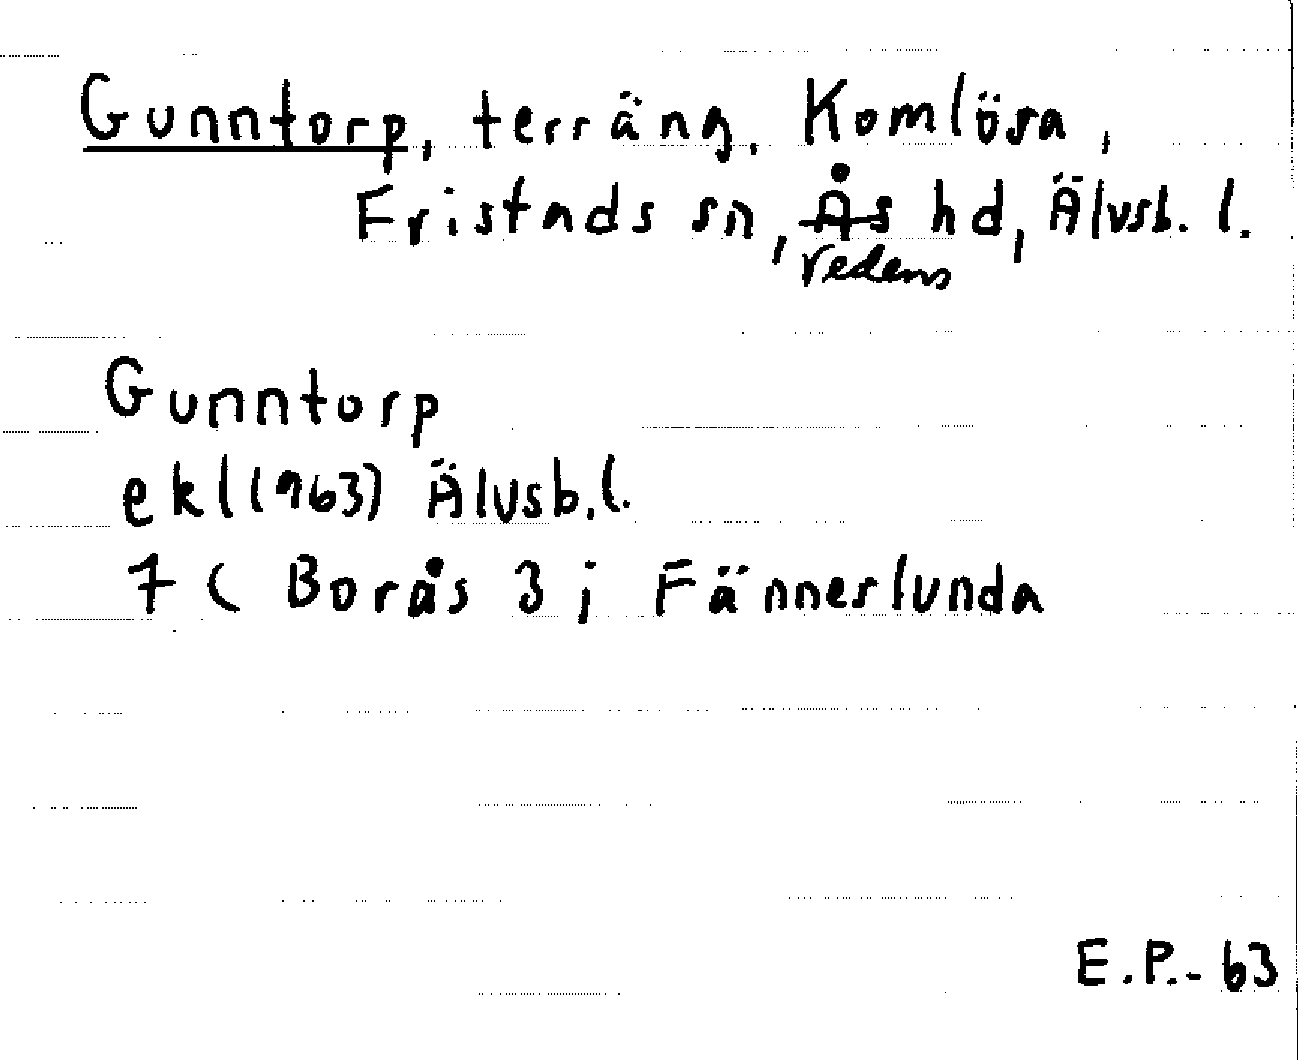 Gunntorp, terräng. Komlösa,
Fristads sn, Ås hd, Älvsb. l.
Vedens
Gunntorp
ekl(1963) Älvsb.l.
7C Borås 3 ; Fännerlunda
E.P.-63